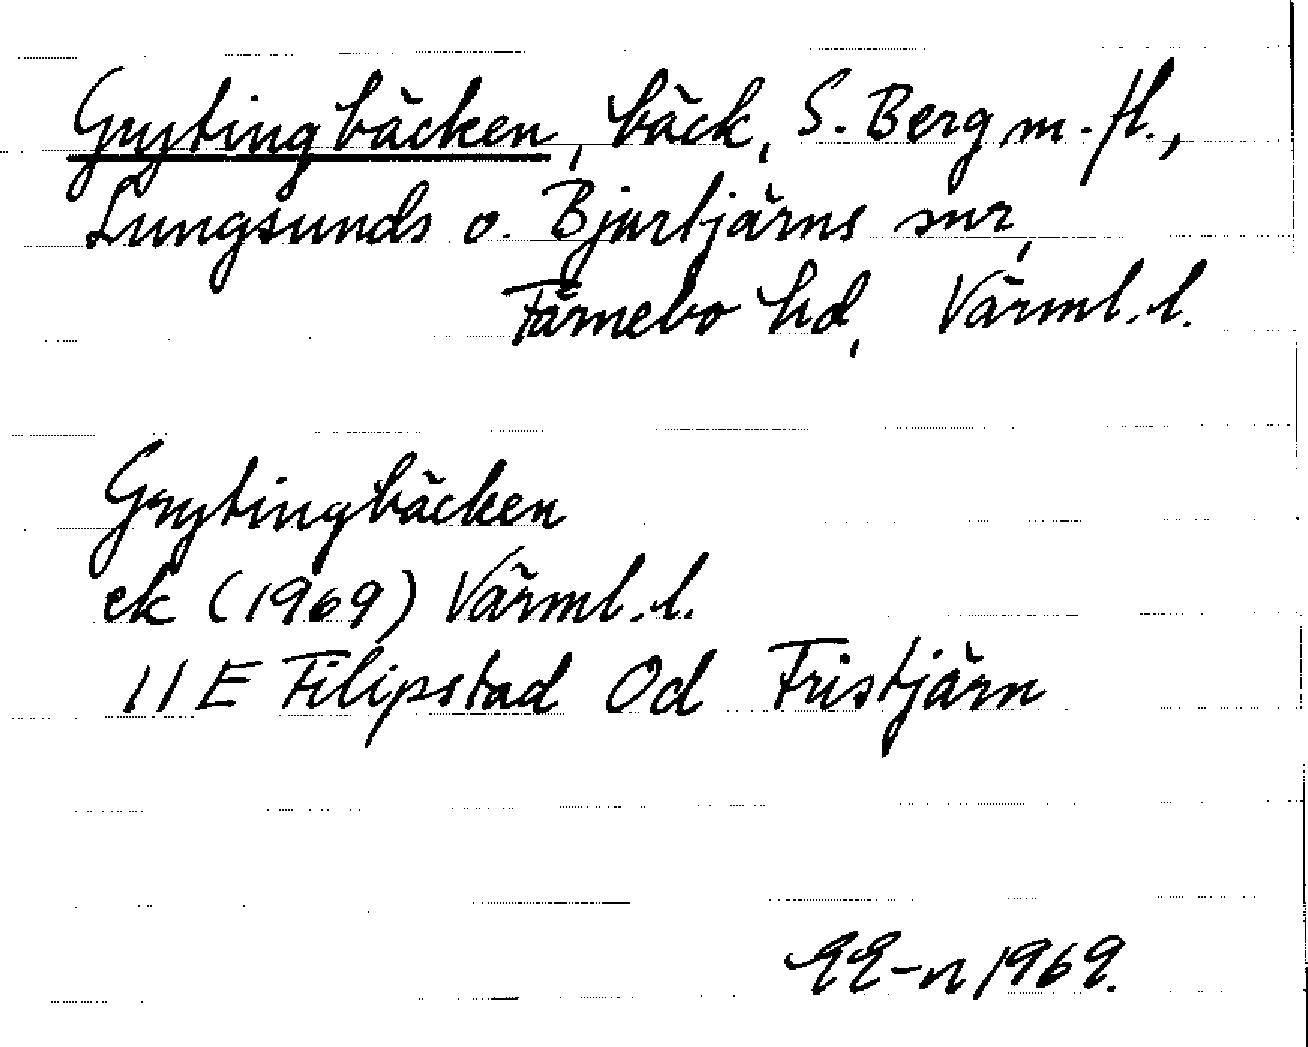 Grytingbäcken, bäck, S. Berg m. fl.,
Lungsunds o. Bjurtjärns snr,
Färnebo hd, Värml. l.
Grytingbäcken
ek (1969) Värml. l.
11 E Filipstad Od Fristjärn
EE-n 1969.